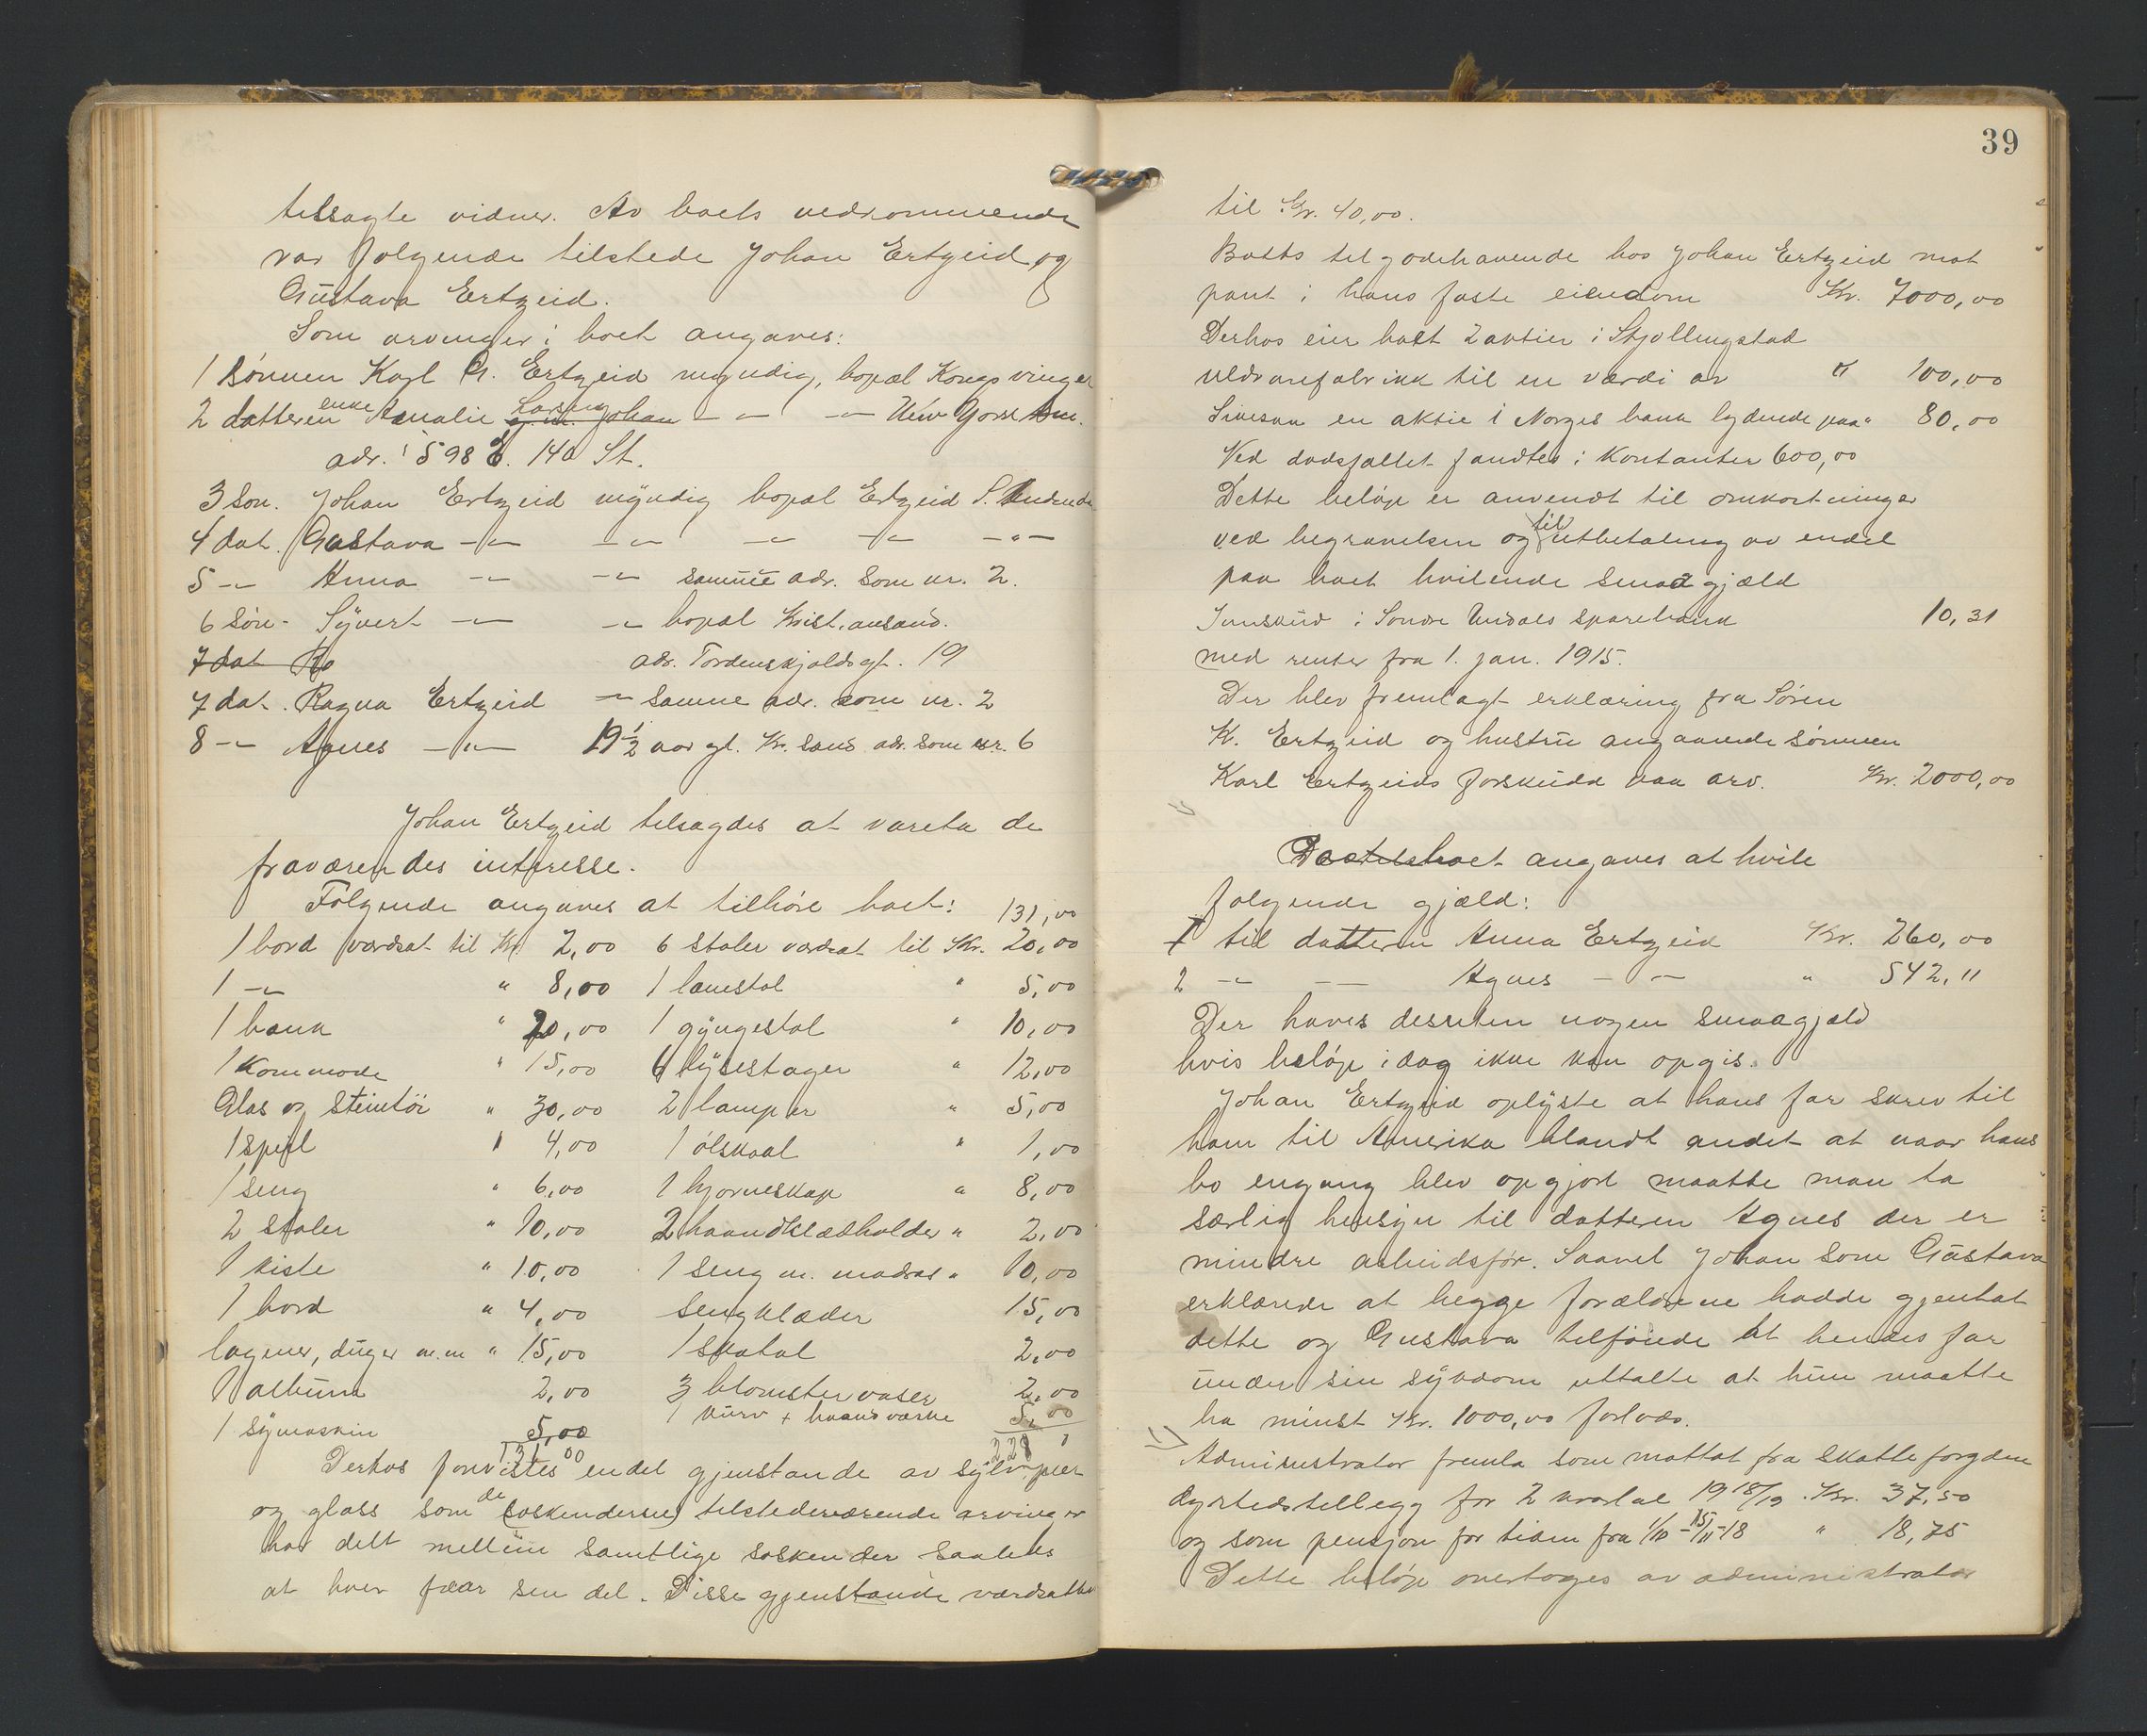 tilsagte vidner. Av boets vedkommende
var følgende tilstede Johan Ertzeid og
Gustava Ertzeid.
Som arvinger i boet angaves:
1 Sønnen Karl G. Ertzeid myndig, bopæl Kongsvinger
2 datteren enke Amalie Larsen Johan — " — — " — New York
adr. 598 E. 140 St.
3 Søn. Johan Ertzeid myndig bopæl Ertzeid S. Undal
4 dat. Gustava — " — — " — — " — — " — — " —
5 — " — Anna — " — — " — samme adr. som nr. 2.
6 Søn - Syvert — " — — " — bopæl Krist.ansand.
7 dat Ra adr. Tordenskjoldsgt. 19
7 dat. Ragna Ertzeid — " — samme adr. som nr. 2
8 — " — Agnes — " — 19 1/2 aar gl. Kr.sand adr. som nr. 6
Johan Ertzeid tilsagdes at vareta de
fraværendes interesse.
Følgende angaves at tilhøre boet: 131,00
1 bord værdsat til Kr. 2,00 6 stoler værdsat til Kr. 20,00
1 — " — " 8,00 1 lænestol " 5,00
1 bænk " 20,00 1 gyngestol " 10,00
1 Kommode " 15,00 6 lysestager " 12,00
Glas og Steintöi " 30,00 2 lamper " 5,00
1 speil " 4,00 1 ølskaal " 1,00
1 seng " 6,00 1 hjørneskap " 8,00
2 stoler " 10,00 2 haandklædholder " 2,00
1 kiste " 10,00 1 seng m. madras " 10,00
1 bord " 4,00 Sengklæder 15,00
lagener, duger m.m " 15,00 1 skatol 2,00
1 album 2,00 3 blomstervaser 2,00
1 symaskin 5,00 1 kurv + haandværke 5,00
131 00 228
Derhos forevistes endel gjenstande av sylv, pier
og glass som de (søskenderne) tilstedeværende arvinger
har delt mellem samtlige søskender saaledes
at hver faar sin del. Disse gjenstande værdsattes
39
til Kr. 40,00.
Boets tilgodehavende hos Johan Ertzeid mot
pant i hans faste eiendom Kr. 7000,00
Derhos eier boet 2 aktier i Skjollingstad
uldvarefabrikk til en værdi av " 100,00
Likesaa en aktie i Norges bank lydende paa " 80,00
Ved dødsfallet fandtes i Kontanter 600,00
Dette beløp er anvendt til omkostninger
ved begravelsen og til utbetaling av endel
paa boet hvilende smaagjæld
Innskud i Søndre Undals sparebank 10,31
med renter fra 1. jan. 1915.
Der blev fremlagt erklæring fra Søren
K. Ertzeid og hustru angaaende sønnen
Karl Ertzeids forskudd paa arv. Kr. 2000,00
Paa boet angaves at hvile
følgende gjæld:
1 til datteren Anna Ertzeid Kr. 260,00
2 — " — — — Agnes — " — " 542,11
Der haves desuten nogen smaagjæld
hvis beløp idag ikke kan opgis.
Johan Ertzeid oplyste at hans far skrev til
ham til Amerika blandt andet at naar hans
bo engang blev opgjort maatte man ta
særlig hensyn til datteren Agnes der er
mindre arbeidsfør. Saavel Johan som Gustava
erklærede at begge forældrene hadde gjentat
dette og Gustava tilføiede at hendes far
under sin sykdom uttalte at hun maatte
ha minst Kr. 1000,00 forlods.
Administrator fremla som mottat fra Skattefogden
dyrtidstillegg for 2 kvartal 1918/19. Kr. 37,50
og som pensjon for tiden fra 1/10 - 15/11-18 " 18,75
Dette beløp overtoges av administrator